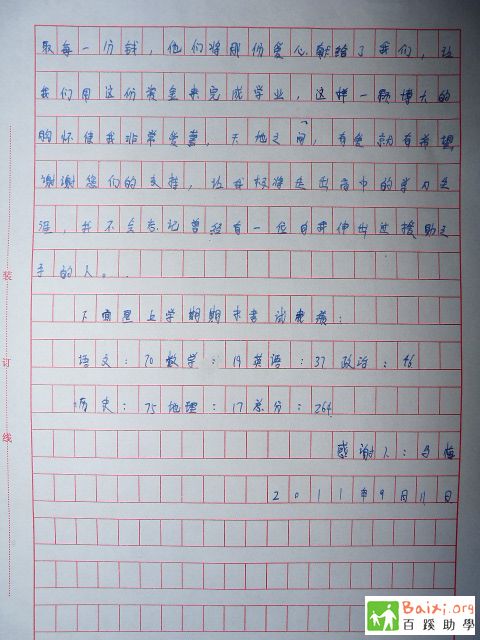 取每一份钱，他们将那份爱心献给了我们，让
我们用这份资金来完成学业，这样一颗博大的
胸怀使我非常受益，天地之间，有爱就有希望，
谢谢您们的支持，让我
涯，我不会忘记曾经有一位向我伸出过援助之
手的人。
下面是上学期期末考试成绩：
语文：70 数学：19 英语：37 政治：46
历史：75 地理：17 总分：264
感谢人：
2011年9月11日
装
订
线
Baixi.org
百蹊助學